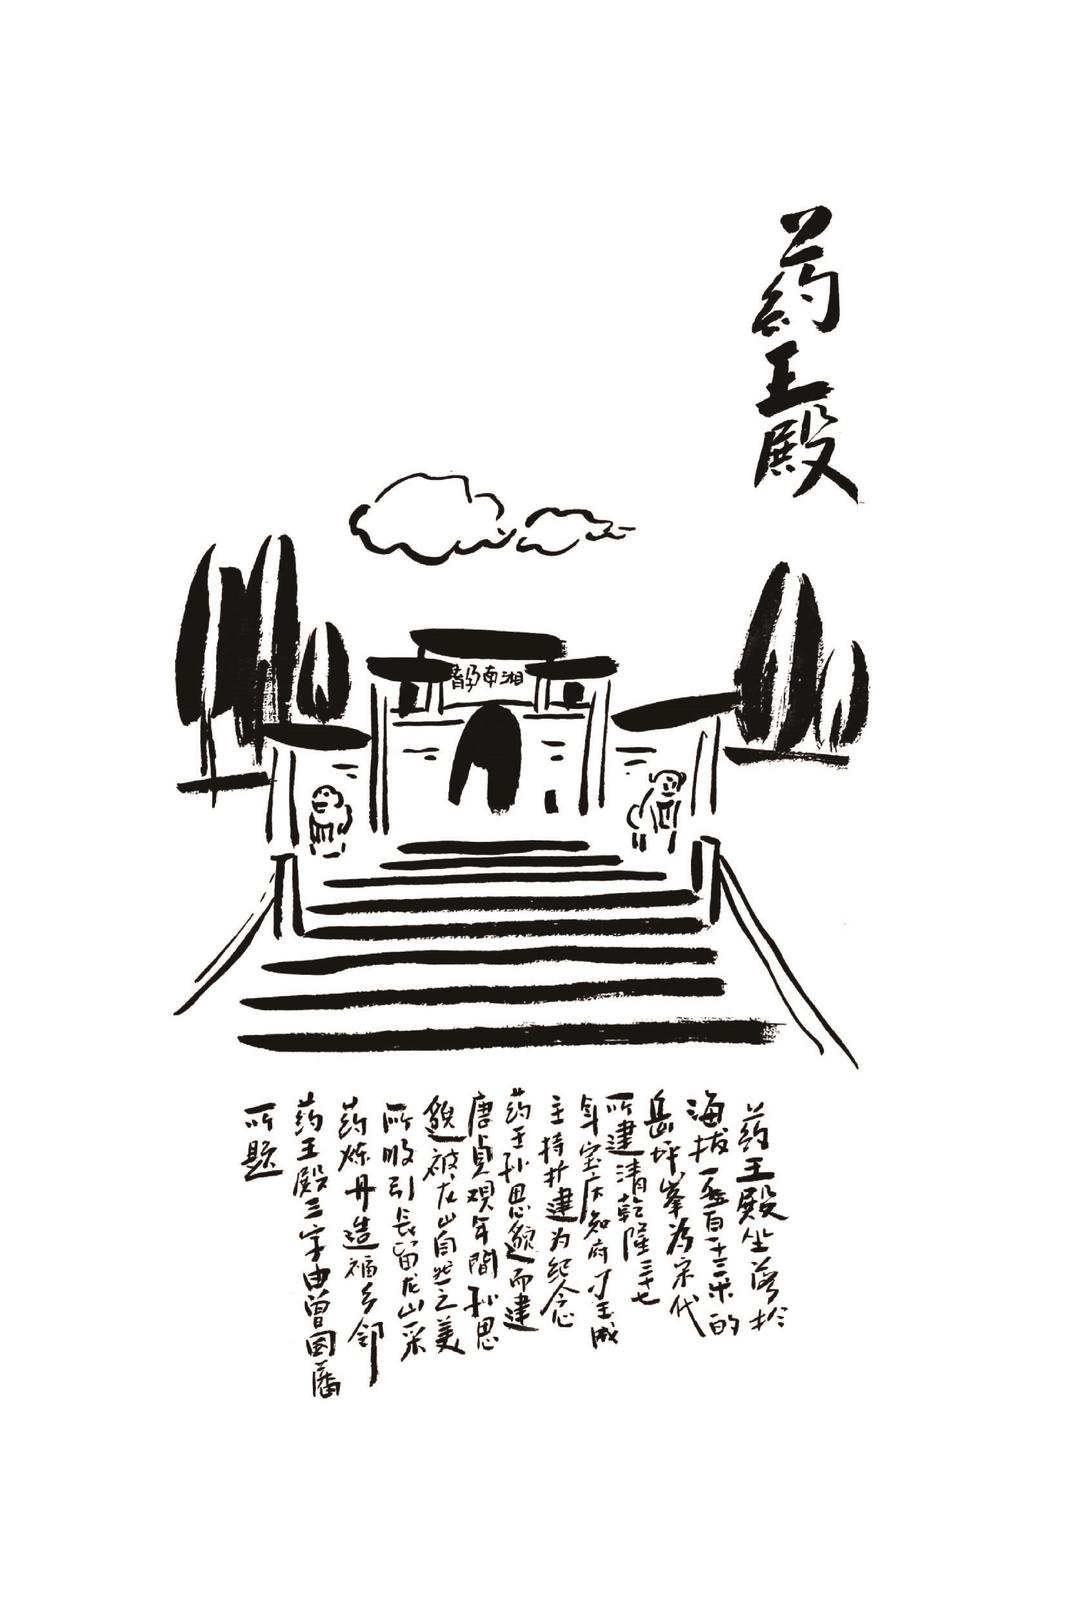 药王殿
湘南静
药王殿坐落於
海拔一千五百一十三米的
岳坪峯为宋代
所建清乾隆三十七
年宝庆知府
主持扩建为纪念
药王孙思邈而建
唐貞观年間孙思
邈被龙山自然之美
所吸引长留龙山采
药炼丹造福乡邻
药王殿三字由曾国藩
所题